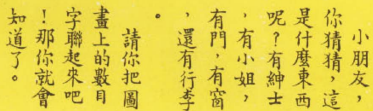 小朋友，
你猜猜，這
是什麼東西
呢？有紳士
，有小姐，
有門，有窗
，還有行李
。
請你把圖
畫上的數目
字聯起來吧
！那你就會
知道了。